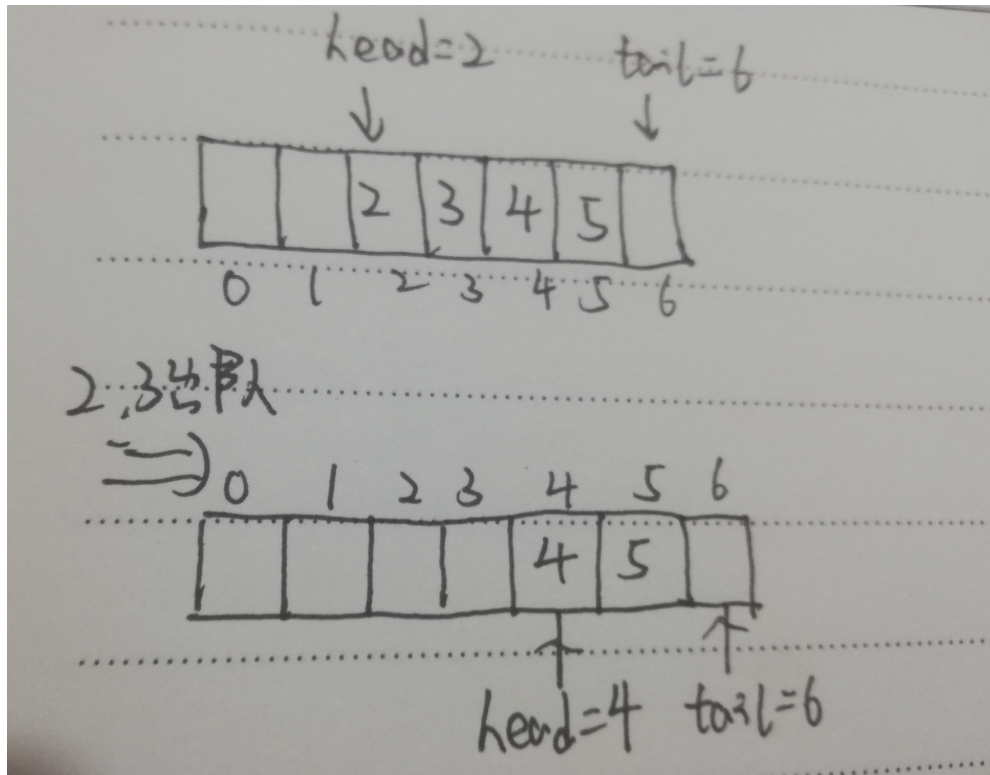 head=2 tail=6
2 3 4 5
0 1 2 3 4 5 6
2.3出队
0 1 2 3 4 5 6
4 5
head=4 tail=6